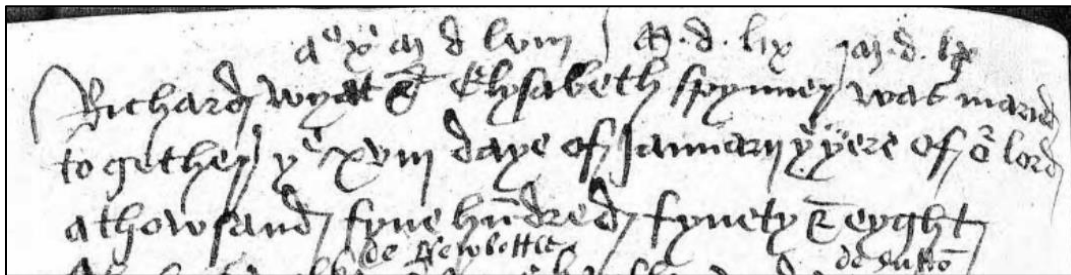 Ao xi m d lviii m.d.lix m.d.lx
Richard wyat & Elysabeth spynner was maried
to gether ye xviii daye of Januarii ye yere of or lord
a thowsand fyve hundred fyvety & eyght
de